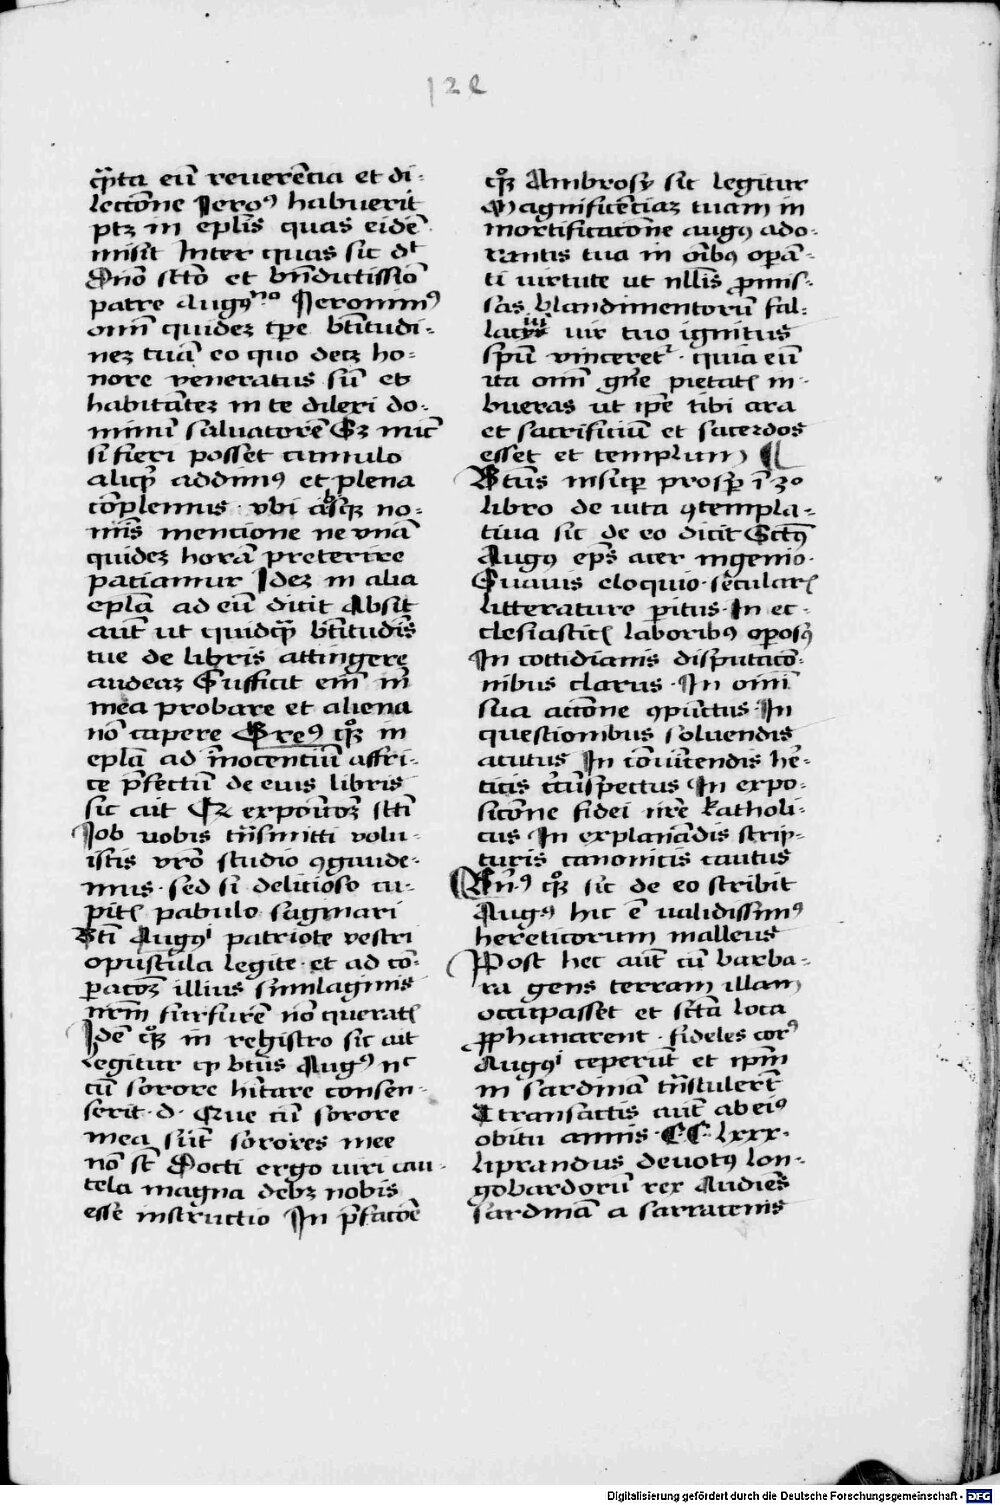 124
qͣnta eū reuerēcia et di-
lectōne Jeroꝰ habuerit
ptꝫ in eplīs quas eidē
misit Inter quas sic dͭ
Dnō sctō et bn̄dictissiō
patre Augꝰno Jeronimꝰ
omī quideꝫ tꝑe bt̄itudi-
neꝫ tuā eo quo decꝫ ho-
nore veneratus sū et
habitāteꝫ in te dilexi do-
minū saluatorē Sꝫ nūc
si fieri posset cumulo
aliqͣ addimꝰ et plena
cōplemus vbi absqꝫ no-
mīs mencione ne vnā
quideꝫ horā preterire
patiamur Jdeꝫ in alia
eplā ad eū dicit Absit
aūt ut quidqͣ bt̄itudīs
tue de libris attingere
audeaꝫ Sufficit em̄ m̄
mea probare et aliena
nō capere Greꝰ qͦꝫ in
eplā ad īnocenciū affri-
ce p̄fectū de eius libris
sic ait Qꝫ expoicōꝫ sctī
Job uobis trn̄smitti volu-
istis vrō studio ꝯgaude-
mus sed si delicioso cu-
pitꝭ pabulo saginari
Btī Augꝰi patriote vestri
opuscula legite et ad cō-
ꝑacōꝫ illius similaginis
nrm̄ furfurē nō queratꝭ
Jdē qͦꝫ in registro sic ait
Legitur ꝙ btūs Augꝰ nͨ
cū sorore hitare consen-
serit d. Que cū sorore
mea sūt sorores mee
nō st̄ Docti ergo uiri cau-
tela magna debꝫ nobis
esse instructio In p̄facōe
qͦꝫ Ambrosy sic legitur
Magnificēciaꝫ tuam in
mortificacōne augꝰ ado-
rantis tua in oībꝰ oꝑā-
ti uirtute ut nllīs ꝓmis-
sas blandimentorū fal-
lacijs uir tuo ignitus
spū vinceretᷣ quia eū
ita omī gn̄e pietatꝭ in-
bueras ut ip̄e tibi ara
et sacrificiū et sacerdos
esset et templum
Btūs insuꝑ prosꝑ ī 3o
libro de uita ꝯtempla-
tiua sic de eo dicit Sctūs
Augꝰ ep̄s acer ingenio
Suauis eloquio secularꝭ
litterature ꝑitus In ec-
clesiasticꝭ laboribꝰ oꝑosꝰ
In cottidianis disputacō-
nibus clarus In omī
sua accōne ꝯpūctus In
questionibus soluendis
acutus In cōuīcendis he-
ticis circūspectus In expo-
sicōne fidei nr̄e katholi-
cus In explanādis scrip-
turis canonicis cautus
qͦꝫ sic de eo scribit
Augꝰ hic ē ualidissimꝰ
hereticorum malleus
Post hec aūt cū barba-
ra gens terram illam
occupasset et sctā loca
ꝓphanarent fideles corꝰ
Augꝰi ceperūt et ip̄m
in sardiniā trn̄stulerūt
Transactis aūt ab eiꝰ
obitu annis CC LXXX
liprandus deuotꝰ lon-
gobardorū rex Audiēs
sardiniā a sarracenis
Digitalisierung gefördert durch die Deutsche Forschungsgemeinschaft - DFG